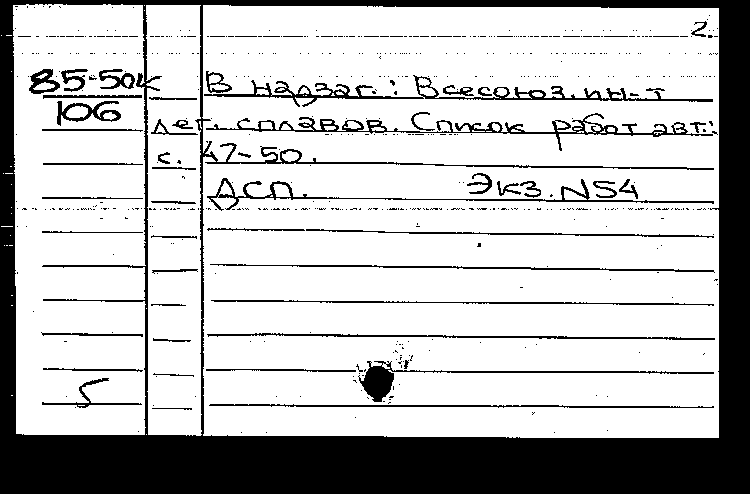 2.
85-50к
106
В надзаг.: Всесоюз. ин-т
лег. сплавов. Список работ авт.:
с. 47-50.
ДСП. Экз. N54
5